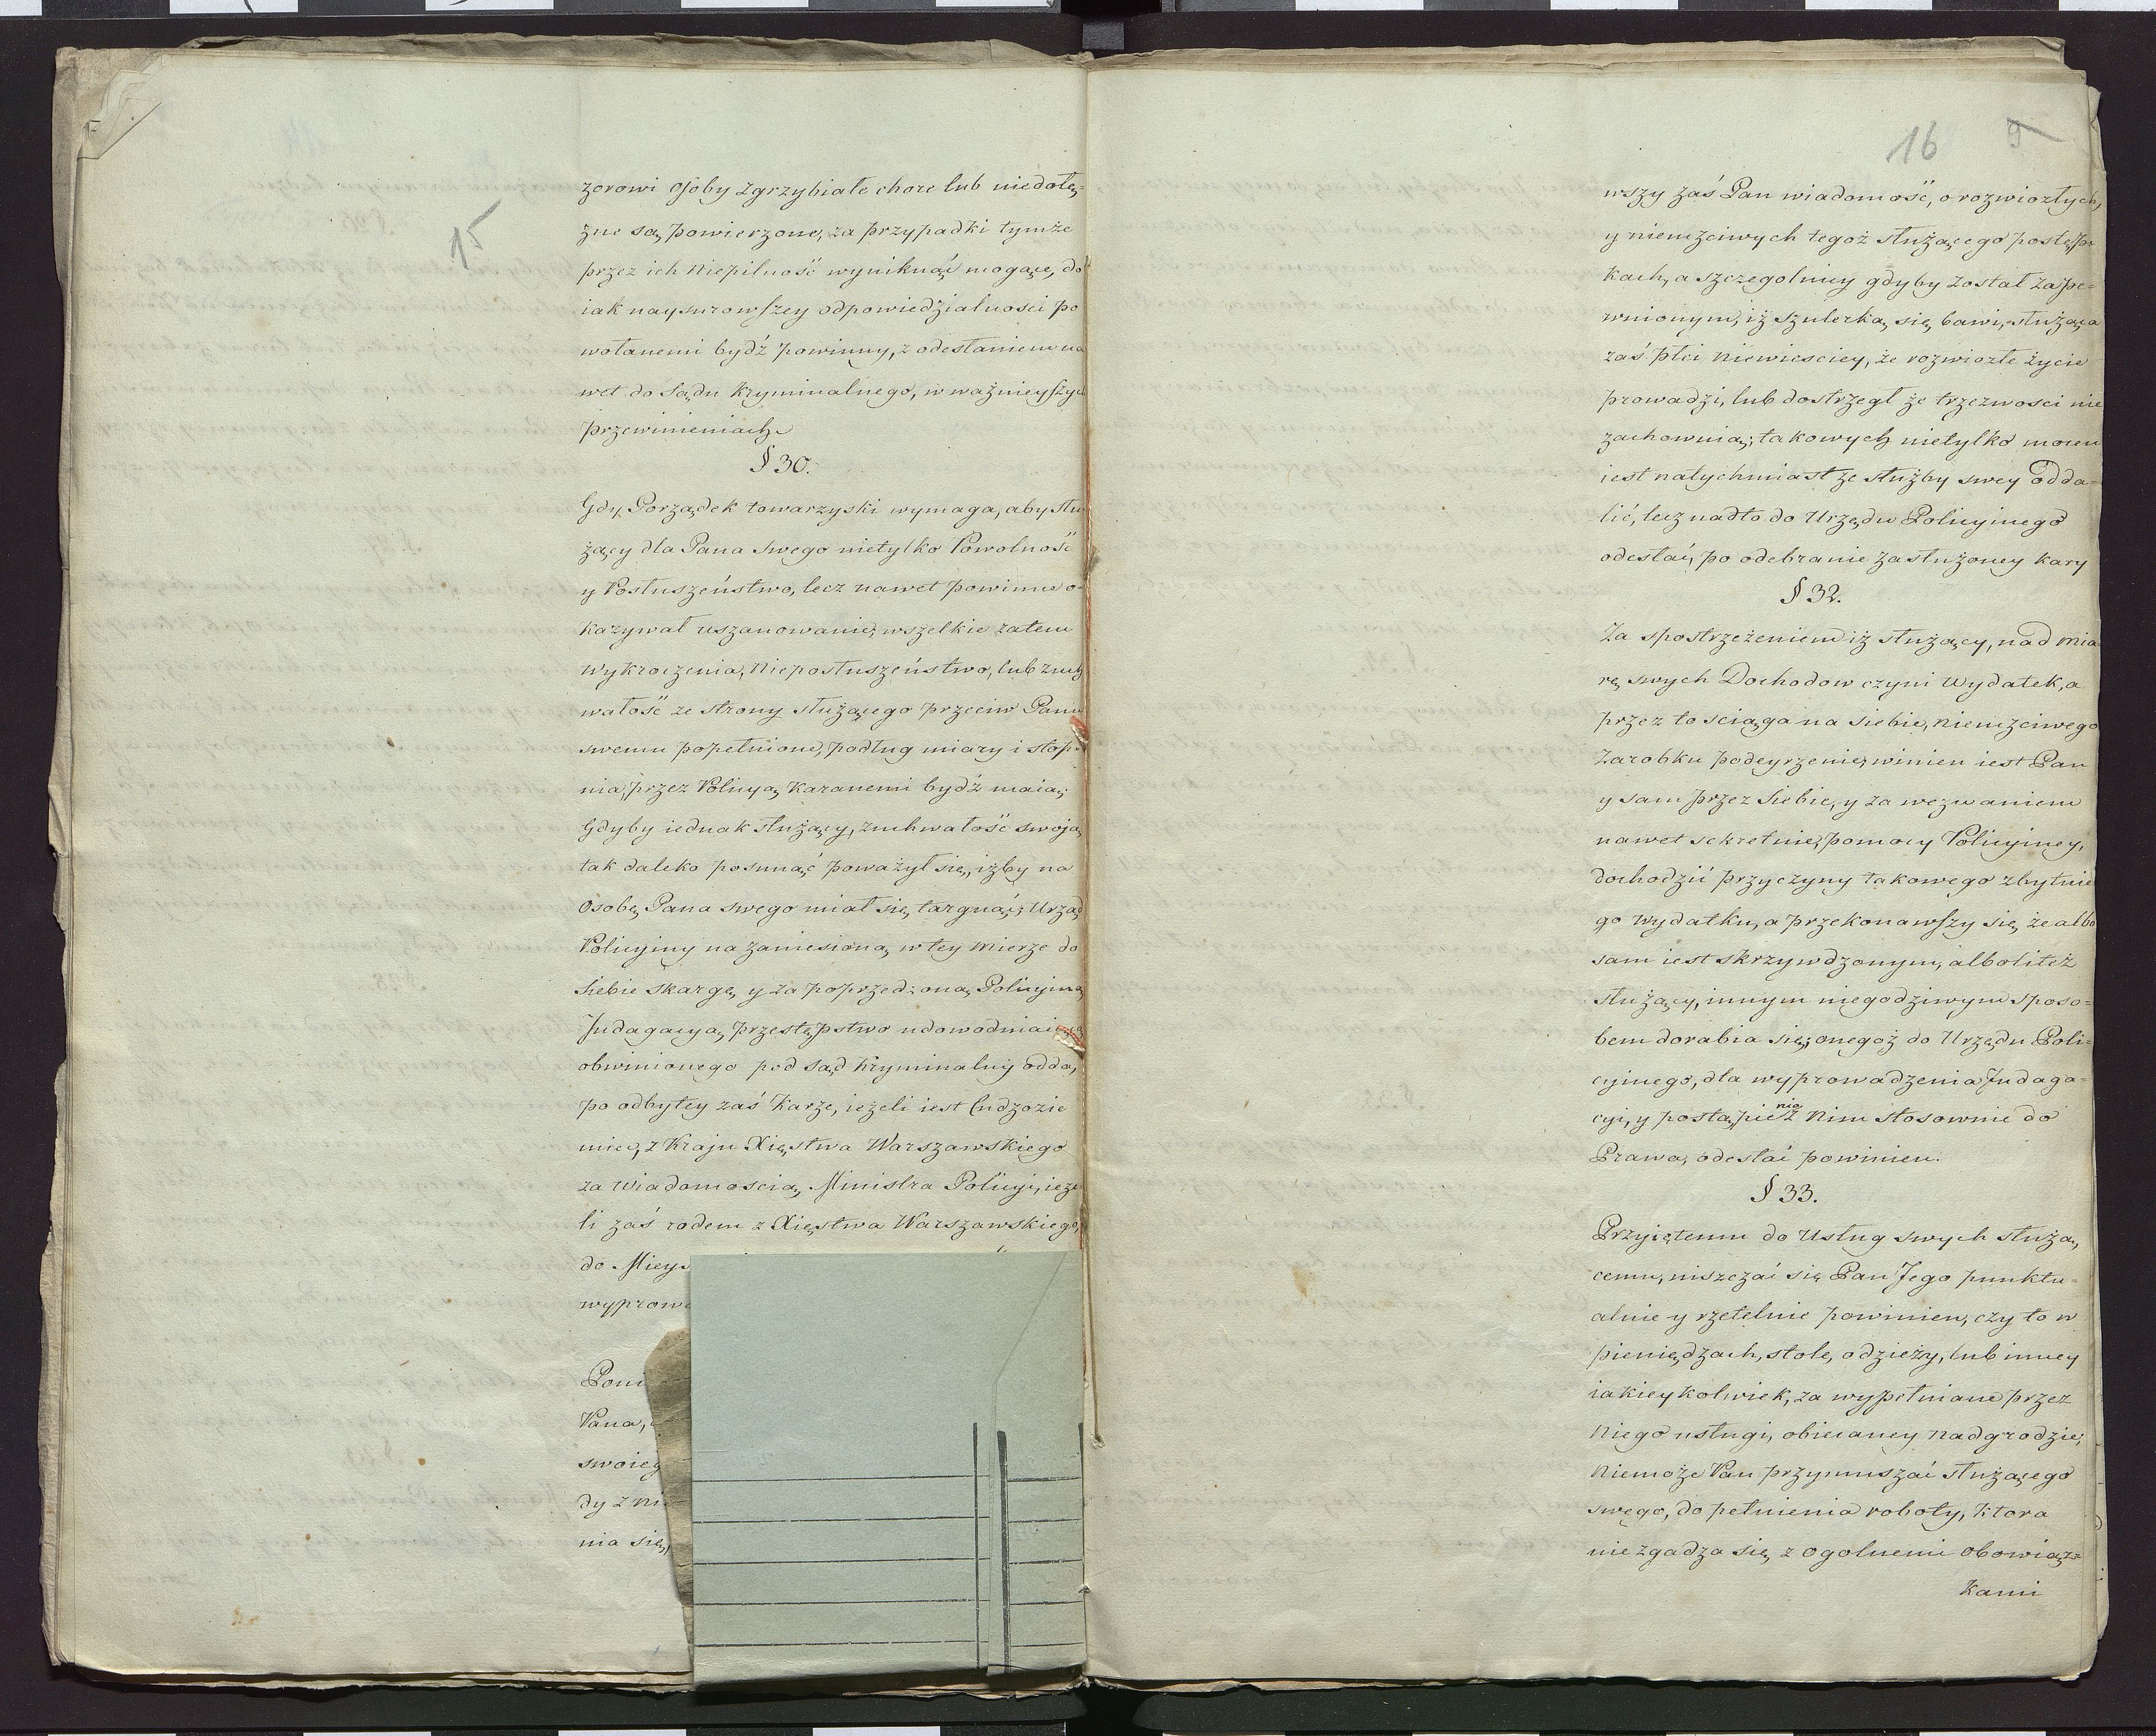 15
zorowi osoby zgrzybiałe chore lub niedołę¬
żne są powierzone, za przypadki tymże
przez ich niepilność wyniknąć mogące, do
iak naysurowszey odpowiedzialnosci po
wołanemi bydź powinny, z odesłaniem na
wet do Sądu Kryminalnego, w ważnieyszych
przewinieniach.
§ 30.
Gdy Porządek towarzyski wymaga, aby słu
żący dla Pana swego nietylko Powolność
y Posłuszeństwo, lecz nawet powinne o¬
kazywał uszanowanie, wszelkie zatem
wykroczenia, Nieposłuszeństwo, lub zuch
wałość ze strony służącego przeciw Panu
swemu popełnione, podług miary i stop¬
nia, przez Policyą karanemi bydź maią;
Gdyby iednak służący, zuchwałość swoją
tak daleko posunąć poważył się, iżby na
Osobę Pana swego miał się targnąć; Urząd
Policyiny na zaniesioną w tey mierze do
siebie skargę, y za poprzedzoną Policyiną
Indagacyą przestępstwo udowodniaiącą
obwinionego pod sąd kryminalny odda,
po odbytey zaś karze, ieżeli iest Cudzozie
miec, z Kraju Xięstwa Warszawskiego
za wiadomoscią Ministra Policyi, ieże
li zaś rodem z Xięstwa Warszawskiego,
do Mieys
wyprowa
Pow
Pana,
swoieg
dy z ni
nia się,
16 9
wszy zaś Pan wiadomość, o rozwiozłych,
y niemżciwych tegoż służącego postęp¬
kach, a szczegolniey gdyby został zape¬
wnionym, iż szulerką się bawi, służąca
zaś płci niewiesciey, że rozwiozłe życie
prowadzi, lub dostrzegł że trzezwosci nie
zachownią; takowych nietylko mocen
iest natychmiast ze służby swey odda¬
lić, lecz nadto do Urzędu Policyinego
odesłać, po odebranie zasłużoney kary
§ 32.
Za spostrzeżeniem iż służący, nad mia
rę swych Dochodow czyni wydatek, a
przez to sciąga na siebie, niemżciwego
Zarobku podeyrzenie, winien iest Pan
y sam przez siebie, y za wezwaniem
nawet sekretnie, pomocy Policyiney,
dochodzić przyczyny takowego zbytnie
go wydatku, a przekonawszy się, że albo
sam iest skrzywdzonym, albolitéż
służący, innym niegodziwym sposo¬
bem dorabia się; onegoż do Urzędu Poli¬
cyinego, dla wyprowadzenia Indaga¬
cyi, y postąpienia z Nim stosownie do
Prawa, odesłać powinien.
§ 33.
Przyiętemu do Usług swych służą
cemu, uiszczać się Pan Jego punktu¬
alnie y rzetelnie powinien, czy to w
pieniędzach, stole, odzieży, lub inney
iakieykolwiek, za wypełniane przez
Niego usługi, obiecaney nadgrodzie;
Niemoże Pan przymuszać służącego
swego, do pełnienia roboty, ktora
nie zgadza się z ogolnemi obowiąz¬
kami